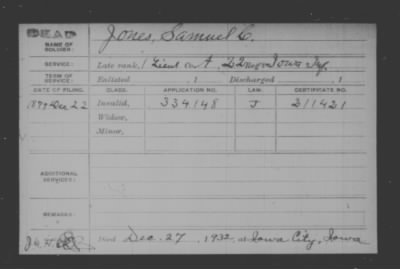 DEAD
NAME OF SOLDIER: Jones, Samuel C.
SERVICE: Late rank, 1 Lieut Co A, 22 Reg't Iowa Inf.
TERM OF SERVICE: Enlisted , 1 Discharged , 1
DATE OF FILING. CLASS. APPLICATION NO. LAW. CERTIFICATE NO.
1879 Dec 22 Invalid, 334148 J 211421
Widow,
Minor,
ADDITIONAL SERVICES:
REMARKS:
Died Dec. 27, 1932, at Iowa City, Iowa